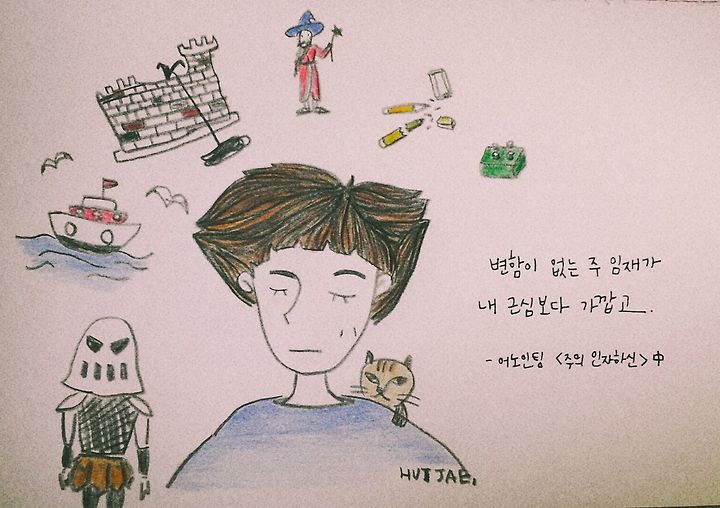 변함이 없는 주 임재가
내 근심보다 가깝고.
- 어노인팅 <주의 인자하신> 中
HUTJAE.